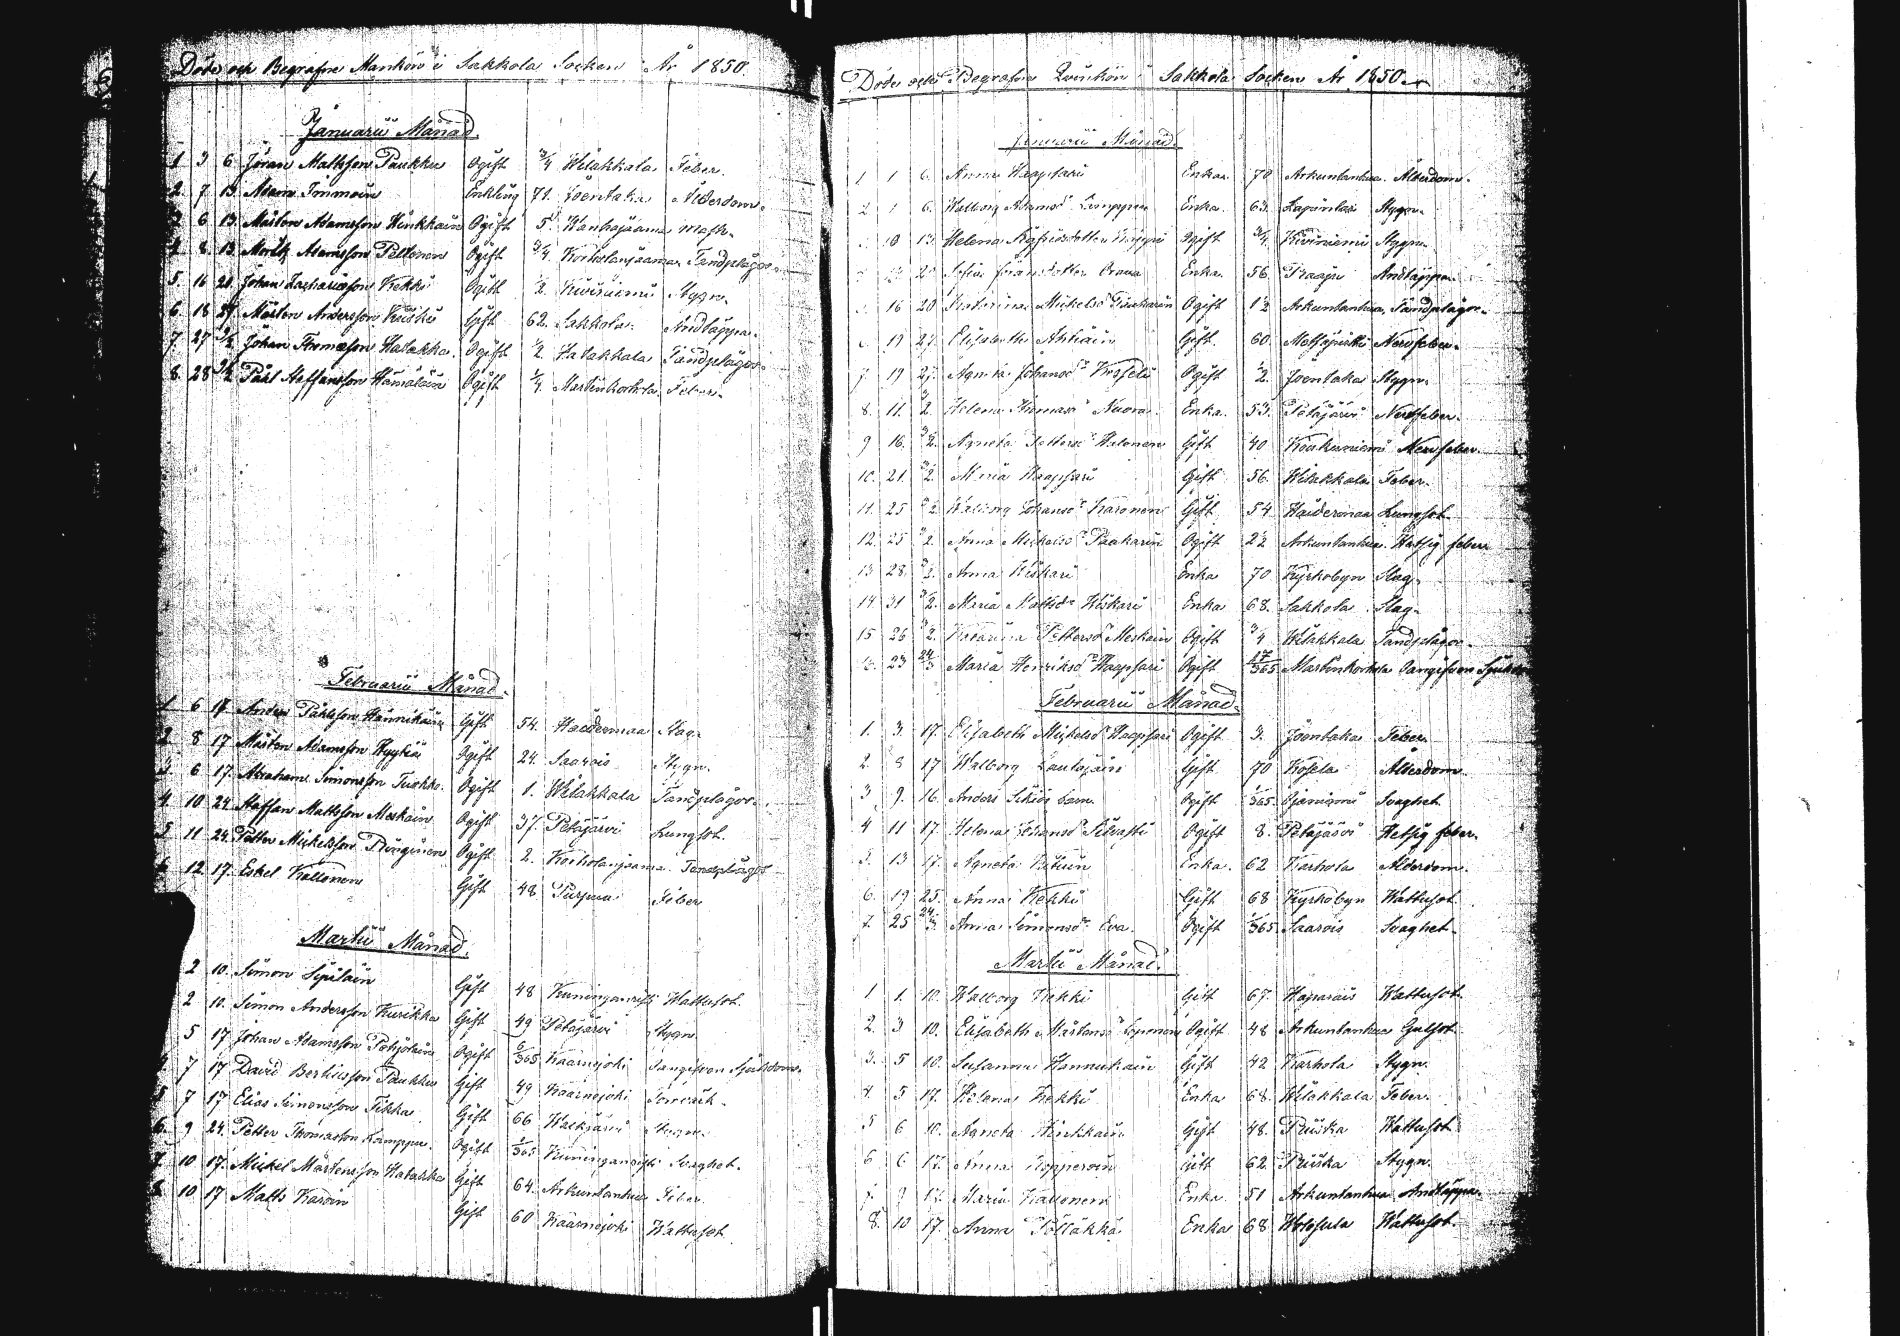 Döde och Begrafne Mankön i Sakkola Socken År 1850.
Januarii Månad.
1 3 6 Jöran Mattsson Paukku Ogift 3/4 Wilakkala Feber.
2. 7 13. Adam Immoin Enkling 71. Joentaka Ålderdom.
3 6 13. Mårten Adamsson Hinkkain Ogift 5. Hanhijoama
4 8 13 Moritz Adamsson Peltonen Ogift 3/4 Korholanjaama Tandplågor.
5. 16 20. Johan Zachariasson Kekki Ogift 1/2 Kiviniemi Stygn.
6. 18 Mårten Andersson Kiiski Gift 62. Sakkola Andtäppa.
7. 27 3/2 Johan Thomasson Hatakka. Ogift 1/2 Hatakkala Tandplågor.
8. 28 3/2 Påhl Staffansson Hämäläin Ogift 1/4 Martinkorhola Feber.
Februarii Månad.
1 6 17. Anders Påhlsson Hannikain Gift 54. Haidermaa Slag.
2. 8 17 Mårten Adamsson Hyytiä Ogift 24. Saarois Stygn.
3. 6 17. Abraham Simonsson Turkki Ogift 1. Wilakkala Tandplågor.
4. 10 24. Staffan Mattsson Meskain Ogift 37. Petäjärvi Lungsot.
5 11 24. Petter Mickelsson Pöyginen Ogift 2. Korholanjaama Tandplågor
12 17. Eskel Kallonen Gift 48 Purpua Feber
Martii Månad.
2 10. Simon Sipiläin Gift 48 Kuninganristi Wattusot.
2 10. Simon Andersson Kurikka Gift 49 Petäjärvi Stygn.
5 17 Johan Adamsson Pohjolain Ogift 6/365 Kaarnajoki Oangifven Sjukdom.
4 7 17 David Bertilsson Paukku Gift 49 Kaarnajoki
5 7 17 Elias Simonsson Tikka Gift 66 Walkjärvi Stygn.
6. 9 24. Petter Thomasson Kamppu. Ogift 1/365 Kuninganristi Svaghet.
7 10 17. Mickel Mårtensson Hatakka Gift 64. Arkuntanhua Feber
8 10 17 Matts Karvin Gift 60 Kaarnajoki Wattusot
Döde och Begrafne Qvinkön i Sakkola Socken År 1850.
Januarii Månad.
1 1 6. Anna Haapsari Enka. 70 Arkuntanhua. Ålderdom.
2. 1 6. Walborg Adamsdr Kamppu Enka. 63. Lapinlax Stygn.
10 13. Helena Sigfridsdotter Enka Ogift 3/4 Kiviniemi Stygn.
Sofia Jöransdotter Orava Enka. 56. Kraaja Andtäppa.
16 20 Katharina Mickelsdr Paakarin Ogift 1 1/2 Arkuntanhua Tandplågor.
6. 19 27. Elisabeth Ahtiain Gift. 60. Metsäpirtti Nervfeber.
7. 19 27. Agneta Johansdr Ogift 1/2. Joentaka Stygn.
8. 11. 3/2. Helena Thomasdr Nuora. Enka. 53. Petäjärvi Nervfeber.
9 16. 3/2. Agneta Pettersdr Halonen Gift 40 Nervfeber.
10. 21. 3/2. Maria Haapsari Gift 56. Wilakkala Feber.
11. 25 3/2. Walborg Johansdr Karonen Gift 54 Haidermaa Lungsot.
12. 25 3/2. Anna Mickelsdr Paakarin Ogift 2 1/2 Arkuntanhua. Hetsig feber
13 28. 3/2. Anna Kiskari Enka 70 Kyrkobyn Slag.
14. 31 3/2. Maria Mattsdr Kiskari Enka 68. Sakkola Slag.
15 26 3/2. Katarina Pettersdr Meskain Ogift 3/4 Wilakkala Tandplågor.
16. 23 24/3 Maria Henriksdr Haapsari Ogift 17/365 Martinkorhola Oangifven Sjukdom
Februarii Månad.
1. 3. 17. Elisabeth Mickelsdr Haapsari Ogift 3. Joentaka Feber.
2. 8 17 Walborg Lautajain Gift 70 Kosela Ålderdom.
3 9. 16. Anders barn. Ogift 1/365. Svaghet.
4 11 17. Helena Johansdr Silvasti Ogift 8. Petäjärvi Hetsig feber.
5. 13 17. Agneta Enka. 62 Karhola Ålderdom.
6. 19 25. Anna Kekki Gift 68 Kyrkobyn Wattusot.
7. 25 24/3. Anna Simonsdr Eva. Ogift 1/365. Saarois Svaghet.
Martii Månad.
1 1. 10. Walborg Kekki Gift 67. Haparais Wattusot.
2. 3 10. Elisabeth Mårtensdr Loponen Ogift 48 Arkuntanhua Gulsot.
3. 5 10. Susanna Hannukain Gift 42 Karhola Stygn.
4. 5 17. Helena Kekki Enka 68. Wilakkala Feber.
5 6 10. Agneta Hinkkain Gift 48. Piiska Wattusot
6 6 17. Anna Kopperoin Gift 62. Piiska Stygn.
7. 9 17. Maria Kallonen Enka 51 Arkuntanhua Andtäppa.
8. 10 17. Anna Pölläkkä Enka 68 Wattusot.